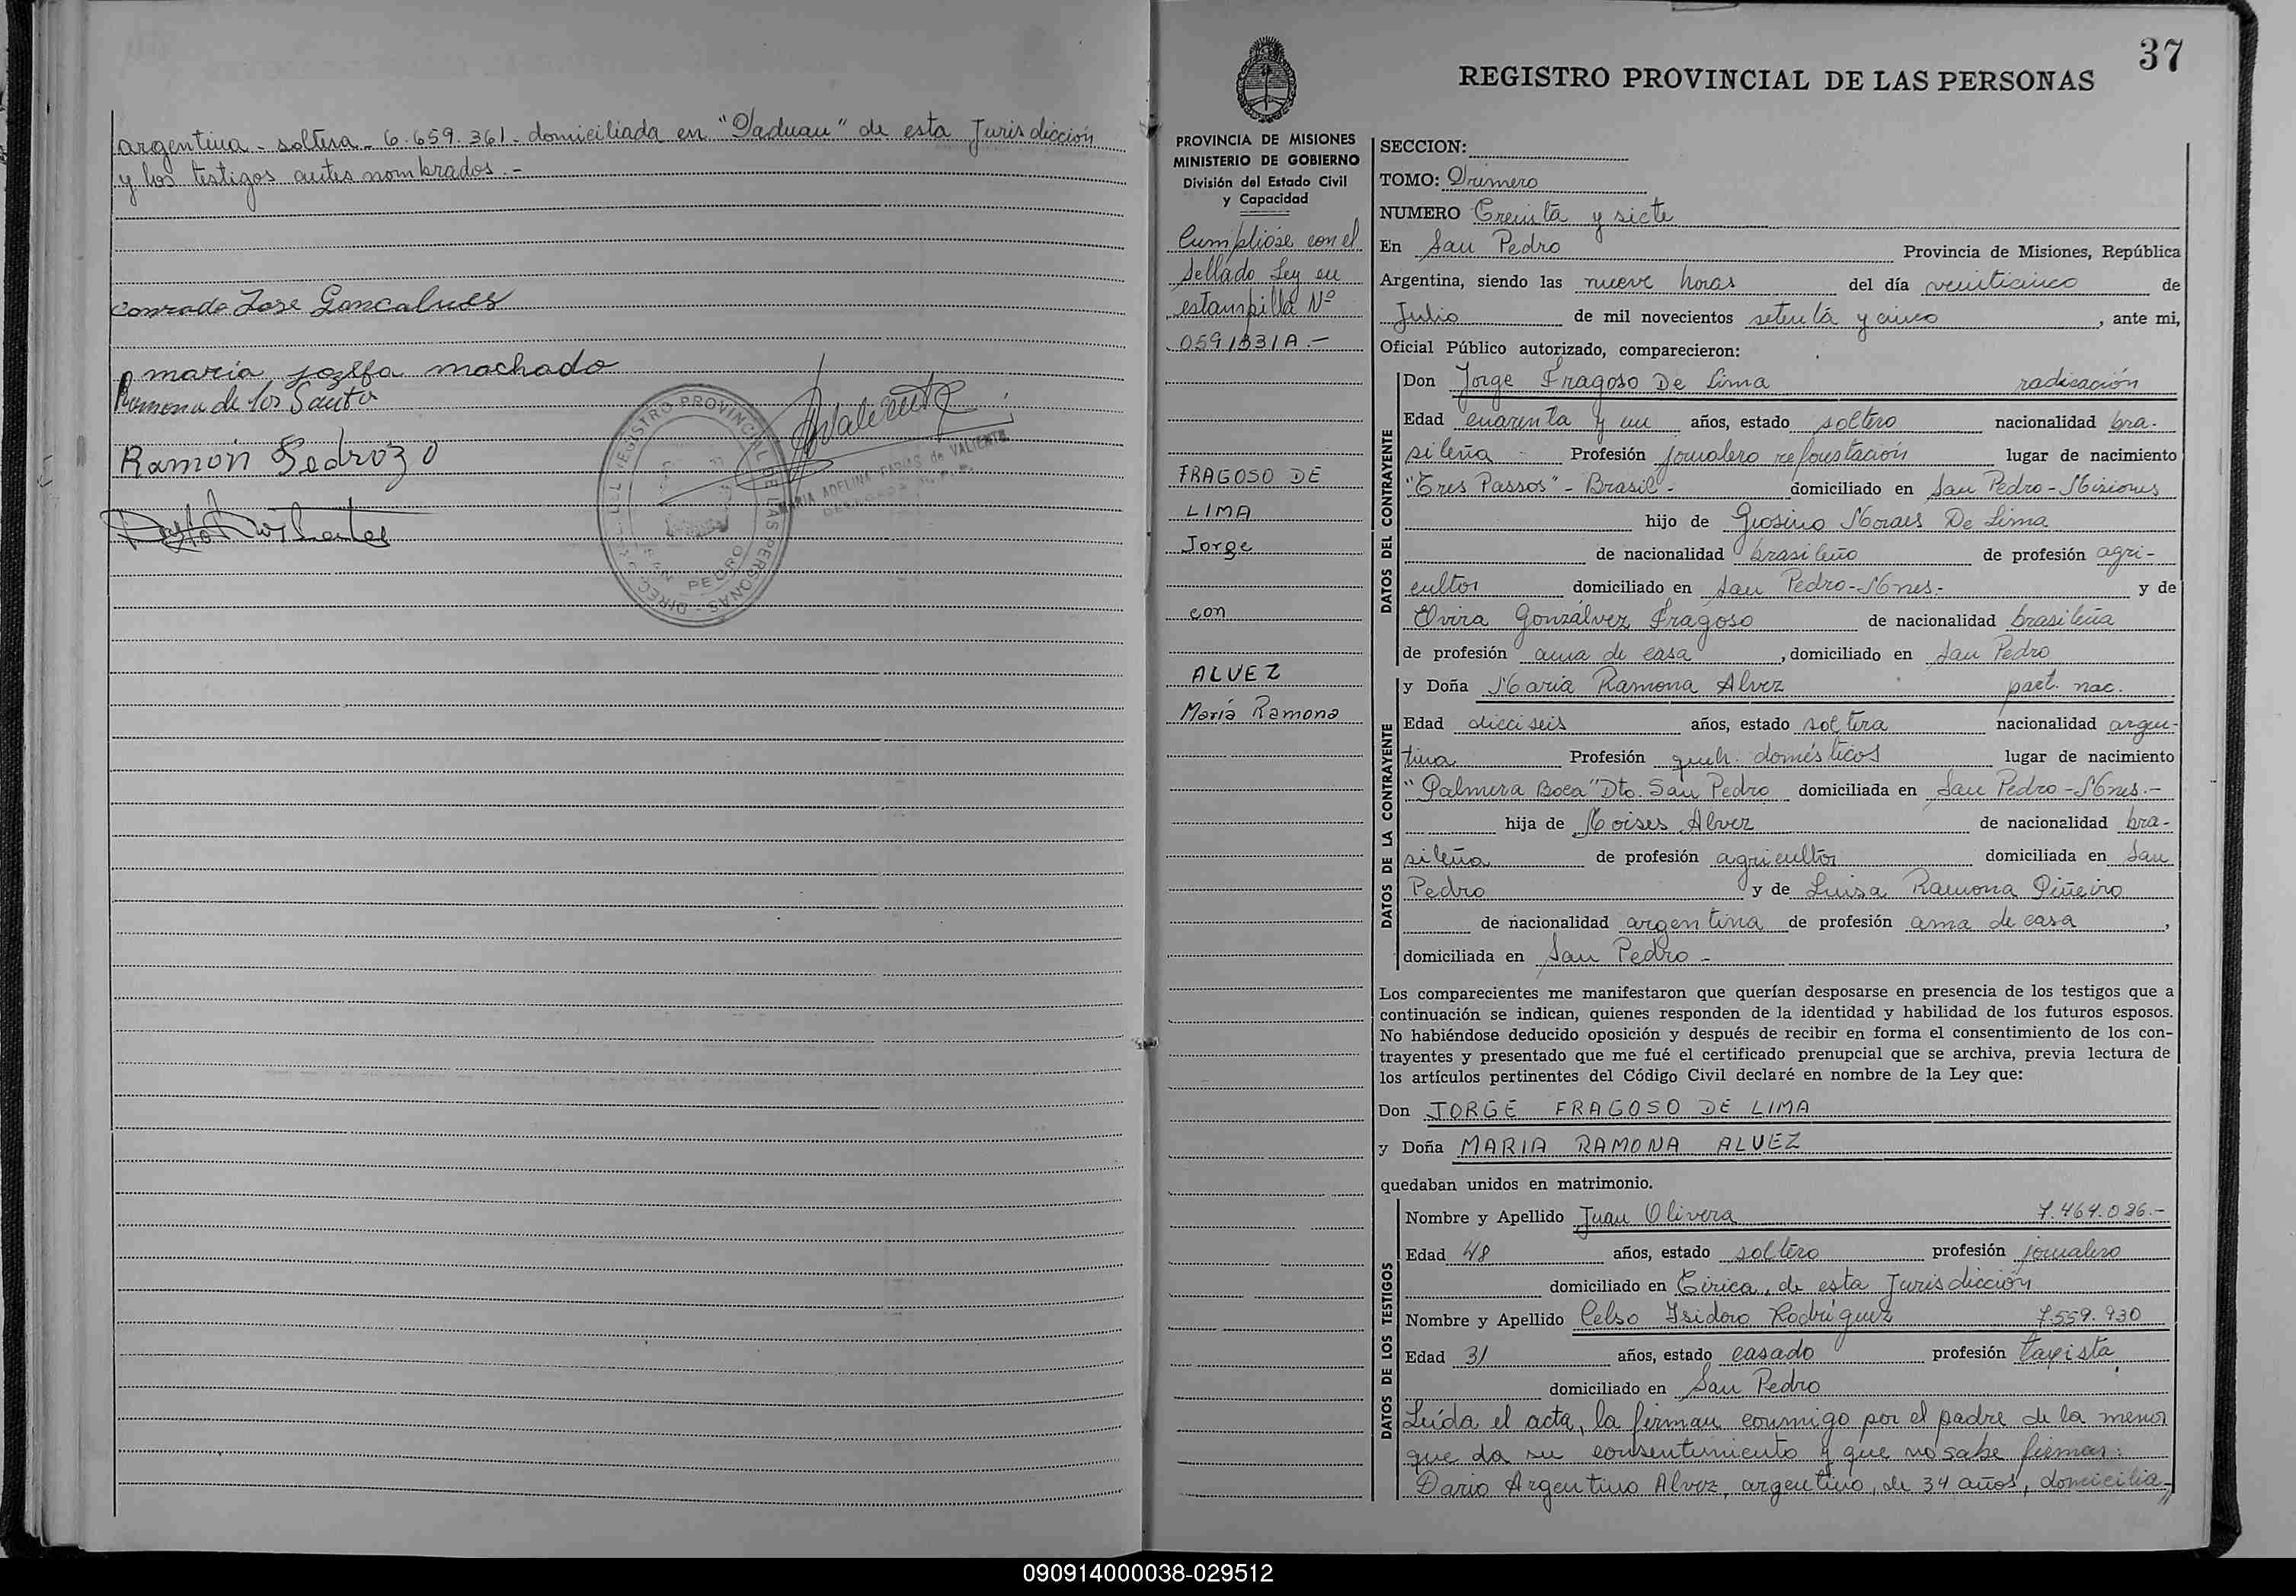 argentina - soltera - 6.659.361 - domiciliada en "Paduan" de esta Jurisdicción
y los testigos antes nombrados.-
Conrado Jose Goncalves
maria jozefa machado
Ramona de los Santo
Ramón Pedrozo
REGISTRO PROVINCIAL DE LAS PERSONAS
SAN PEDRO
MARIA ADELINA FARIAS de VALIENTE
37
REGISTRO PROVINCIAL DE LAS PERSONAS
PROVINCIA DE MISIONES
MINISTERIO DE GOBIERNO
División del Estado Civil
y Capacidad
Cumplióse con el
Sellado Ley en
estampilla Nº
0591331A.-
FRAGOSO DE
LIMA
Jorge
con
ALVEZ
María Ramona
SECCION:
TOMO: Primero
NUMERO Treinta y siete
En San Pedro Provincia de Misiones, República
Argentina, siendo las nueve horas del día veinticinco de
Julio de mil novecientos setenta y cinco, ante mi,
Oficial Público autorizado, comparecieron:
DATOS DEL CONTRAYENTE
Don Jorge Fragoso De Lima radicación
Edad cuarenta y un años, estado soltero nacionalidad bra-
sileña Profesión jornalero reforestación lugar de nacimiento
"Tres Passos" - Brasil - domiciliado en San Pedro - Misiones
hijo de Giosino Moraes De Lima
de nacionalidad brasileño de profesión agri-
cultor domiciliado en San Pedro - Mnes.- y de
Elvira Gonzálvez Fragoso de nacionalidad brasileña
de profesión ama de casa, domiciliado en San Pedro
DATOS DE LA CONTRAYENTE
y Doña Maria Ramona Alvez part. nac.
Edad dieciseis años, estado soltera nacionalidad argen-
tina Profesión queh. domésticos lugar de nacimiento
"Palmera Boca" Dto. San Pedro domiciliada en San Pedro - Mnes.-
hija de Moises Alvez de nacionalidad bra-
sileña de profesión agricultor domiciliada en San
Pedro y de Luisa Ramona Piñeiro
de nacionalidad argentina de profesión ama de casa,
domiciliada en San Pedro -
Los comparecientes me manifestaron que querían desposarse en presencia de los testigos que a
continuación se indican, quienes responden de la identidad y habilidad de los futuros esposos.
No habiéndose deducido oposición y después de recibir en forma el consentimiento de los con-
trayentes y presentado que me fué el certificado prenupcial que se archiva, previa lectura de
los artículos pertinentes del Código Civil declaré en nombre de la Ley que:
Don JORGE FRAGOSO DE LIMA
y Doña MARIA RAMONA ALVEZ
quedaban unidos en matrimonio.
DATOS DE LOS TESTIGOS
Nombre y Apellido Juan Olivera 7.464.086.-
Edad 48 años, estado soltero profesión jornalero
domiciliado en Tirica, de esta Jurisdicción
Nombre y Apellido Celso Isidoro Rodríguez 7.559.930
Edad 31 años, estado casado profesión taxista
domiciliado en San Pedro
Leída el acta, la firman conmigo por el padre de la menor
que da su consentimiento y que no sabe firmar:
Dario Argentino Alvez, argentino, de 34 años, domicilia//
090914000038-029512